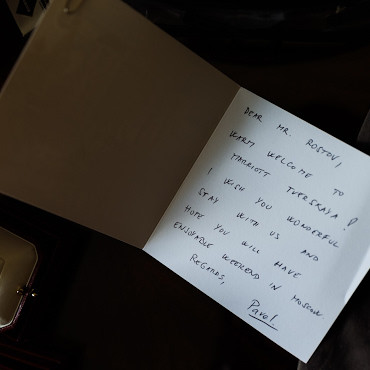 DEAR MR. ROSTOV,
WARM WELCOME TO
MARRIOTT TVERSKAYA!
I WISH YOU WONDERFUL
STAY WITH US AND
HOPE YOU WILL HAVE
ENJOYABLE WEEKEND IN MOSCOW.
REGARDS,
Pavel